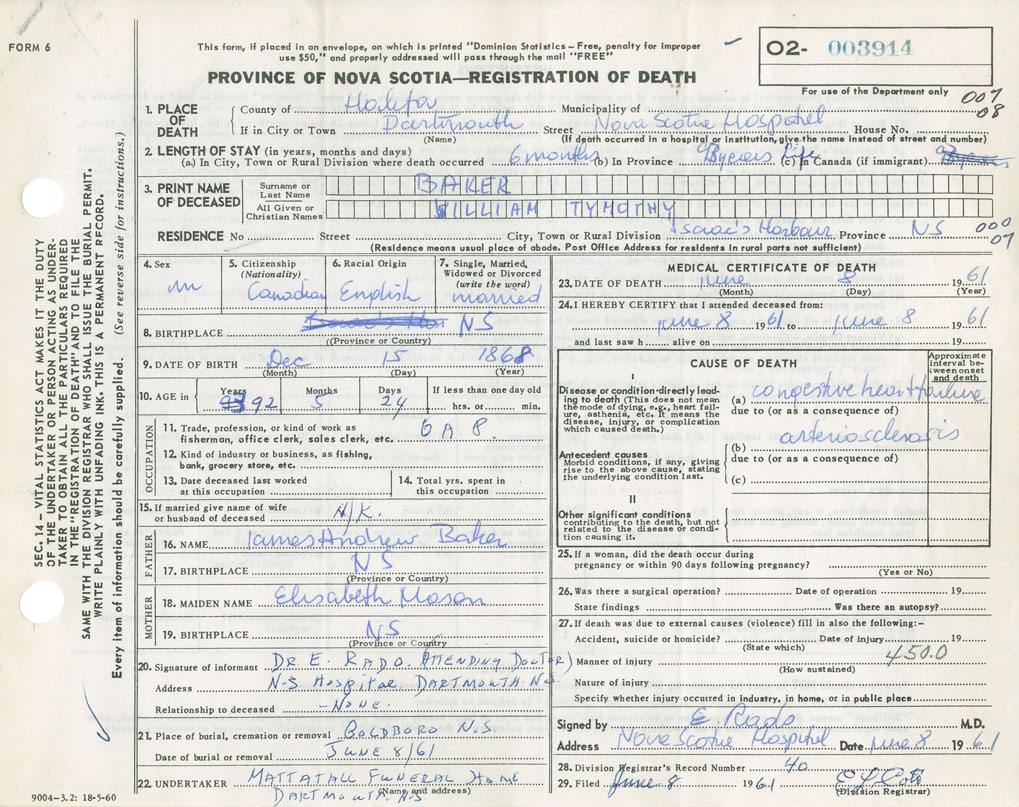 FORM 6
This form, if placed in an envelope, on which is printed "Dominion Statistics – Free, penalty for improper
use $50," and properly addressed will pass through the mail "FREE"
O2- 003914
PROVINCE OF NOVA SCOTIA—REGISTRATION OF DEATH
For use of the Department only
007
08
1. PLACE OF DEATH
County of Halifax Municipality of
If in City or Town Dartmouth Street Nova Scotia Hospital House No.
(Name) (If death occurred in a hospital or institution, give the name instead of street and number)
2. LENGTH OF STAY (in years, months and days)
(a) In City, Town or Rural Division where death occurred 6 months (b) In Province life (c) In Canada (if immigrant)
3. PRINT NAME OF DECEASED
Surname or Last Name BAKER
All Given or Christian Names WILLIAM TYMOTHY
RESIDENCE No Street City, Town or Rural Division Isaac's Harbour Province NS
000
07
(Residence means usual place of abode. Post Office Address for residents in rural parts not sufficient)
4. Sex m
5. Citizenship (Nationality) Canadian
6. Racial Origin English
7. Single, Married, Widowed or Divorced (write the word) married
8. BIRTHPLACE NS
((Province or Country)
9. DATE OF BIRTH Dec 15 1868
(Month) (Day) (Year)
10. AGE in Years 92 Months 5 Days 24 If less than one day old
hrs. or min.
OCCUPATION
11. Trade, profession, or kind of work as
fisherman, office clerk, sales clerk, etc.
12. Kind of industry or business, as fishing,
bank, grocery store, etc.
13. Date deceased last worked
at this occupation
14. Total yrs. spent in
this occupation
15. If married give name of wife
or husband of deceased N/K.
FATHER
16. NAME James Andrew Baker
17. BIRTHPLACE NS
(Province or Country)
MOTHER
18. MAIDEN NAME Elisabeth Mason
19. BIRTHPLACE NS
(Province or Country)
20. Signature of informant DR E. RADO. ATTENDING DOCTOR)
Address N.S Hospital DARTMOUTH NS
Relationship to deceased -NONE.
21. Place of burial, cremation or removal GOLDBORO N.S
Date of burial or removal JUNE 8/61
22. UNDERTAKER MATTATALL FUNERAL HOME
(Name and address)
DARTMOUTH. N.S
9004-3.2: 18-5-60
MEDICAL CERTIFICATE OF DEATH
23. DATE OF DEATH June 8 1961
(Month) (Day) (Year)
24. I HEREBY CERTIFY that I attended deceased from:
June 8 1961 to June 8 1961
and last saw h alive on 19
CAUSE OF DEATH
Approximate interval between onset and death
I
Disease or condition directly leading to death (This does not mean the mode of dying, e.g., heart failure, asthenia, etc. It means the disease, injury, or complication which caused death.)
(a) congestive heart failure
due to (or as a consequence of)
Antecedent causes
Morbid conditions, if any, giving rise to the above cause, stating the underlying condition last.
(b) arteriosclerosis
due to (or as a consequence of)
(c)
II
Other significant conditions
contributing to the death, but not related to the disease or condition causing it.
25. If a woman, did the death occur during
pregnancy or within 90 days following pregnancy?
(Yes or No)
26. Was there a surgical operation? Date of operation 19
State findings Was there an autopsy?
27. If death was due to external causes (violence) fill in also the following:–
Accident, suicide or homicide? Date of injury 19
(State which)
450.0
Manner of injury
(How sustained)
Nature of injury
Specify whether injury occurred in industry, in home, or in public place
Signed by E. Rado M.D.
Address Nova Scotia Hospital Date June 8 1961
28. Division Registrar's Record Number 40
29. Filed June 8 1961
(Division Registrar)
SEC. 14 – VITAL STATISTICS ACT MAKES IT THE DUTY
OF THE UNDERTAKER OR PERSON ACTING AS UNDER-
TAKER TO OBTAIN ALL THE PARTICULARS REQUIRED
IN THE "REGISTRATION OF DEATH" AND TO FILE THE
SAME WITH THE DIVISION REGISTRAR WHO SHALL ISSUE THE BURIAL PERMIT.
WRITE PLAINLY WITH UNFADING INK. THIS IS A PERMANENT RECORD.
Every item of information should be carefully supplied. (See reverse side for instructions.)